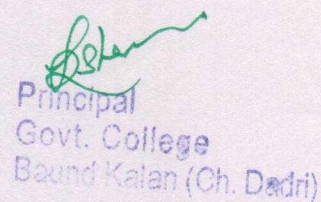 Principal
Govt. College
Baund Kalan (Ch. Dadri)